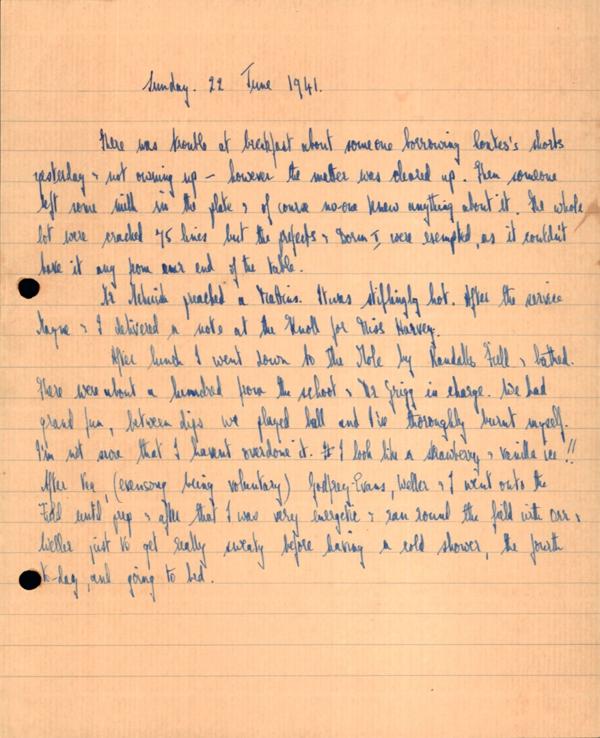 Sunday. 22 June 1941.
There was trouble at breakfast about someone borrowing Coates's shorts
yesterday & not owning up – however the matter was cleared up. Then someone
left some milk in the plate & of course no-one knew anything about it. The whole
lot were cracked 75 lines but the prefects & Dorm I, were exempted, as it couldn't
have it any from our end of the table.
Mr preached a Mattins. It was stiflingly hot. After the service
Mayne & I delivered a note at the Knoll for Miss Harvey.
After lunch I went down to the Mole by Randalls Field & bathed.
There were about a hundred from the school & Mr Grigg in charge. We had
grand fun, between dips we played ball and I've thoroughly burnt myself.
I'm not sure that I haven't overdone it. I look like a strawberry & vanilla ice!!
After tea, (evensong being voluntary) Godfrey-Evans, Weller & I went onto the
Field until prep & after that I was very energetic & ran round the field with Orr &
Weller just to get really sweaty before having a cold shower, the fourth
to-day, and going to bed.